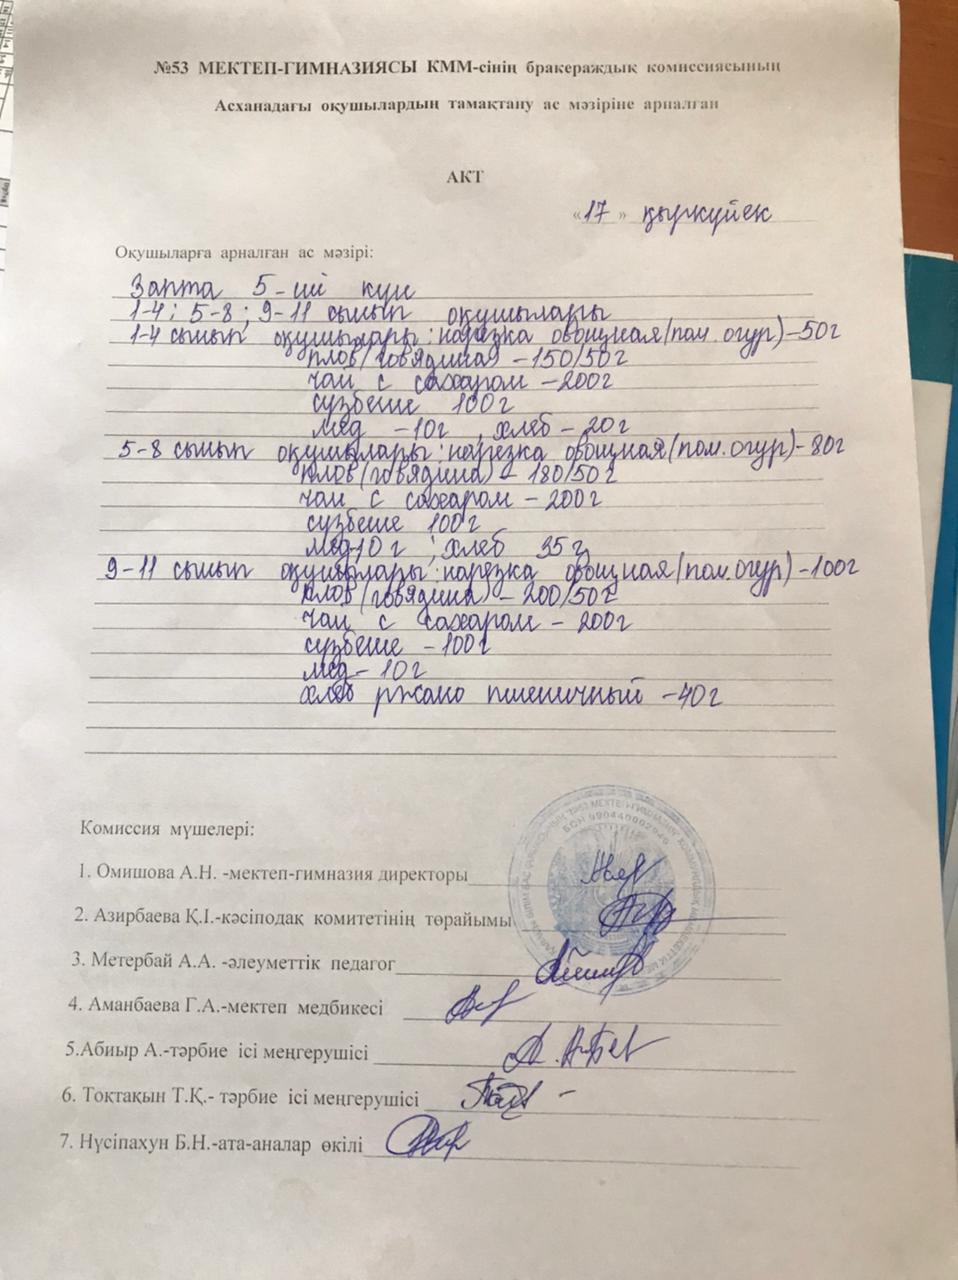 №53 МЕКТЕП-ГИМНАЗИЯСЫ КММ-сінің бракераждық комиссиясының
Асханадағы оқушылардың тамақтану ас мәзіріне арналған
АКТ
«17» қыркүйек
Оқушыларға арналған ас мәзірі:
Запта 5-ші күн
1-4; 5-8; 9-11 сынып оқушылары
1-4 сынып оқушылары: нарезка овощная (пом. огур) -50г
плов (говядина) -150/50г
чай с сахаром -200г
сузбеше 100г
мед -10г, хлеб - 20г
5-8 сынып оқушылары: нарезка овощная (пом. огур) - 80г
плов (говядина) - 180/50г
чай с сахаром - 200г
сузбеше 100г
мед 10г; хлеб 35г
9-11 сынып оқушылары: нарезка овощная (пом. огур) -100г
плов (говядина) - 200/50г
чай с сахаром - 200г
сузбеше -100г
мед - 10г
хлеб ржано пшеничный -40г
Комиссия мүшелері:
1. Омишова А.Н. -мектеп-гимназия директоры
2. Азирбаева Қ.І.-кәсіподақ комитетінің төрайымы
3. Метербай А.А. -әлеуметтік педагог
4. Аманбаева Г.А.-мектеп медбикесі
5.Абиыр А.-тәрбие ісі меңгерушісі
6. Тоқтақын Т.Қ.- тәрбие ісі меңгерушісі
7. Нүсіпахун Б.Н.-ата-аналар өкілі